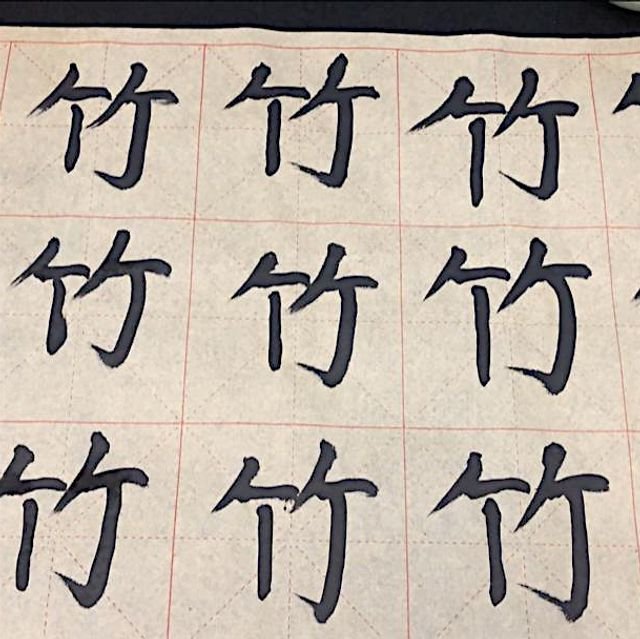 竹竹竹
竹竹竹
竹竹竹